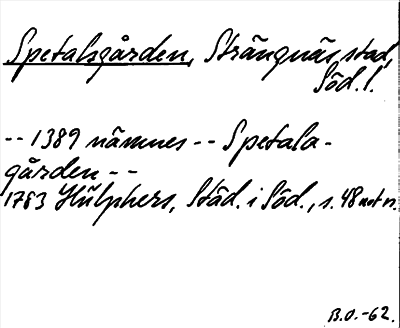 Spetalsgården, Strängnäs stad,
Söd. l.
-- 1389 nämnes -- Spetala-
gården --
1783 Hülphers, Städ. i Söd., s. 48 not n.
B.O.-62.